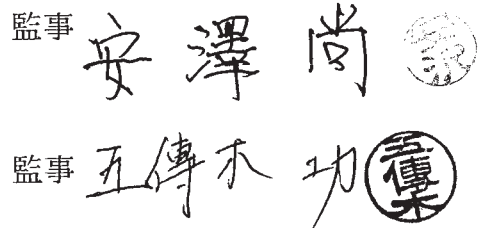 監事 安澤尚
監事 五傳木功 五傳木